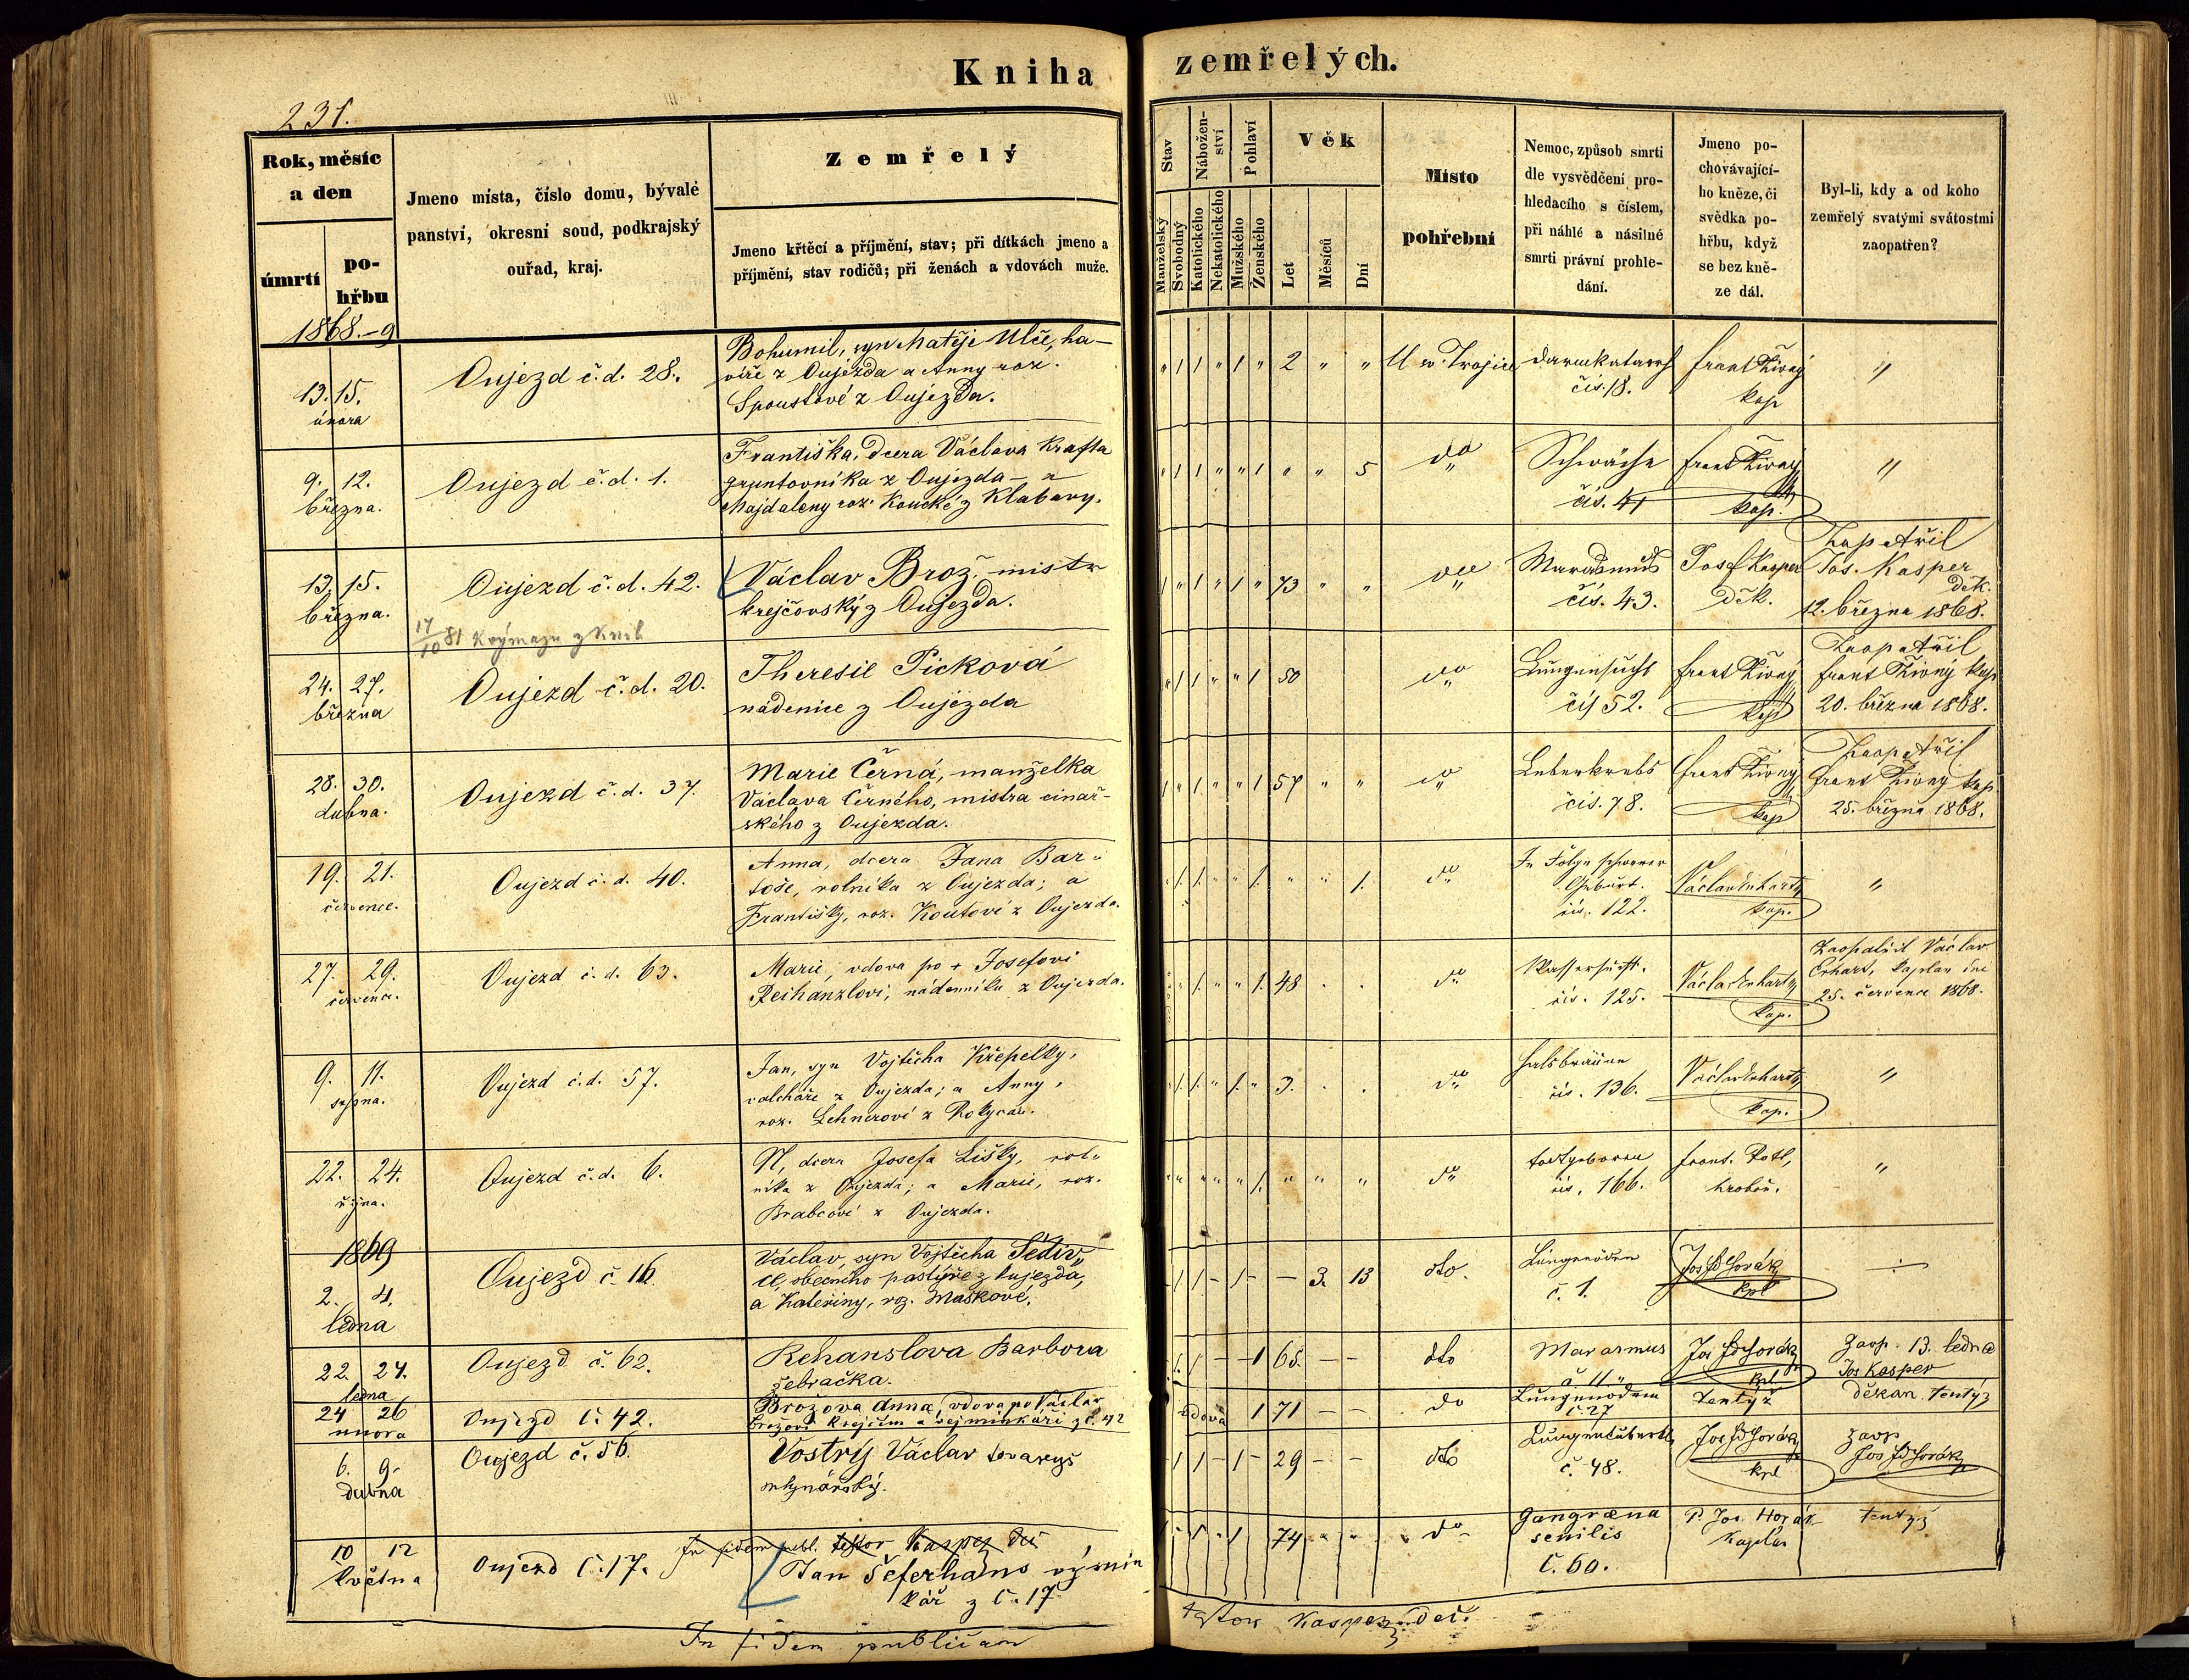 Kniha zemřelých.
231.
Rok, měsíc
a den
úmrtí
po-
hřbu
Jmeno místa, číslo domu, bývalé
panství, okresní soud, podkrajský
ouřad, kraj.
Zemřelý
Jmeno křtěcí a příjmění, stav; při dítkách jmeno a
příjmění, stav rodičů; při ženách a vdovách muže.
Stav
Manželský
Svobodný
Nábožen-
ství
Katolického
Nekatolického
Pohlaví
Mužského
Ženského
Věk
Let
Měsíců
Dní
Místo
pohřební
Nemoc, způsob smrti
dle vysvědčení pro-
hledacího s číslem,
při náhlé a násilné
smrti právní prohle-
dání.
Jmeno po-
chovávající-
ho kněze, či
svědka po-
hřbu, když
se bez kně-
ze dál.
Byl-li, kdy a od koho
zemřelý svatými svátostmi
zaopatřen?
1868.-9
13. 15.
února
Oujezd č.d. 28.
Bohumil, syn Matěje Ulče, ha-
víře z Oujezda a Anny roz.
Spoustové z Oujezda.
" 1 1 " 1 " 2 " "
U sv. Trojice
Darmkatarrh
čís. 18.
Frant Živný
kap
"
9. 12.
března.
Oujezd č.d. 1.
Františka, dcera Václava Krafta
gruntovníka z Oujezda - a
Majdaleny roz. Koucké z Klabavy.
" 1 1 " " 1 " " 5
do
Schwäche
čís. 41
Frant Živný
kap.
"
13. 15.
března.
Oujezd č.d. 42.
17/10 81 K výmazu z knih
Václav Brož. mistr
krejčovský z Oujezda.
1 " 1 " 1 " 73 " "
do
Marasmus
čís. 43.
Josef Kasper
děk.
Zaopatřil
Jos. Kasper
děk.
12. března 1868.
24. 27.
března
Oujezd č.d. 20.
Theresie Picková
nádenice z Oujezda
" 1 1 " " 1 50
do
Lungensucht
čís 52.
Frant Živný
kap
Zaopatřil
Frant Živný kap
20. března 1868.
28. 30.
dubna.
Oujezd č.d. 37.
Marie Černá, manželka
Václava Černého, mistra cinař-
ského z Oujezda.
1 " 1 " " 1 57 " "
do
Leberkrebs
čís. 78.
Frant Živný
kap
Zaopatřil
Frant Živný kap.
25. března 1868.
19. 21.
července.
Oujezd č.d. 40.
Anna, dcera Jana Bar-
toše, rolníka z Oujezda; a
Františky, roz. Koutové z Oujezda.
" 1. 1. " " 1. " " 1.
do
In Folge schwerer
Geburt.
čís. 122.
Václav Erhart
kap.
"
27. 29.
července.
Oujezd č.d. 63.
Marie, vdova po + Josefovi
Reihanzlovi, nádenníku z Oujezda.
1. " " 1. 48 . .
do
Wassersucht.
čís. 125.
Václav Erhart
kap.
Zaopatřil Václav
Erhart, kaplan dne
25. července 1868.
9. 11.
srpna.
Oujezd č.d. 57.
Jan, syn Vojtěcha Křepelky,
valcháře z Oujezda; a Anny,
roz. Lehnerové z Rokycan.
" 1. 1. " 1. " 3. . .
do
Halsbräune
čís. 136.
Václav Erhart
kap.
"
22. 24.
října.
Oujezd č.d. 6.
N, dcera Josefa Lišky, rol-
níka z Oujezda; a Marie, roz.
Brabcové z Oujezda.
" " " " " 1. " " "
do
todtgeboren
čís. 166.
Frant. Rotl,
hrobař.
"
1869
2. 4.
ledna
Oujezd č. 16.
Václav, syn Vojtěcha Šediv-
ce, obecního pastýře z Oujezda,
a Kateřiny, roz. Maškové.
- 1 1 - 1 - - 3. 13
dto.
Lungenödem
č. 1.
Jos Horák
kpl
÷
22. 24.
ledna
Oujezd č. 62.
Rehanslova Barbora
žebračka.
- 1 1 - - 1 65. - -
dto
Marasmus
č 11.
Jos Horák
kpl
Zaop. 13. ledna
Jos Kasper
děkan.
24 26
unora
Oujezd č. 42.
Brožova Anna, vdova po Václav
Brožovi krejčím a vejminkáři z č. 42
vdova 1 71 - -
do
Lungenödem
č. 27
tentýž
tentýž
6. 9.
dubna
Oujezd č. 56.
Vostrý Václav tovaryš
mlynářský.
- 1 1 - 1 - 29 - -
dto
č. 48.
Jos Horák
kpl
zaop
Jos Horák
10 12
května
Oujezd č. 17.
In fidem publ. testor Kasper děk
Jan Šeferhans výmin
kář z č. 17
74
do
Gangræna
senilis
č. 60.
P. Jos. Horák
Kaplán
tentýž
In fidem publicam
testor Kasper děk.